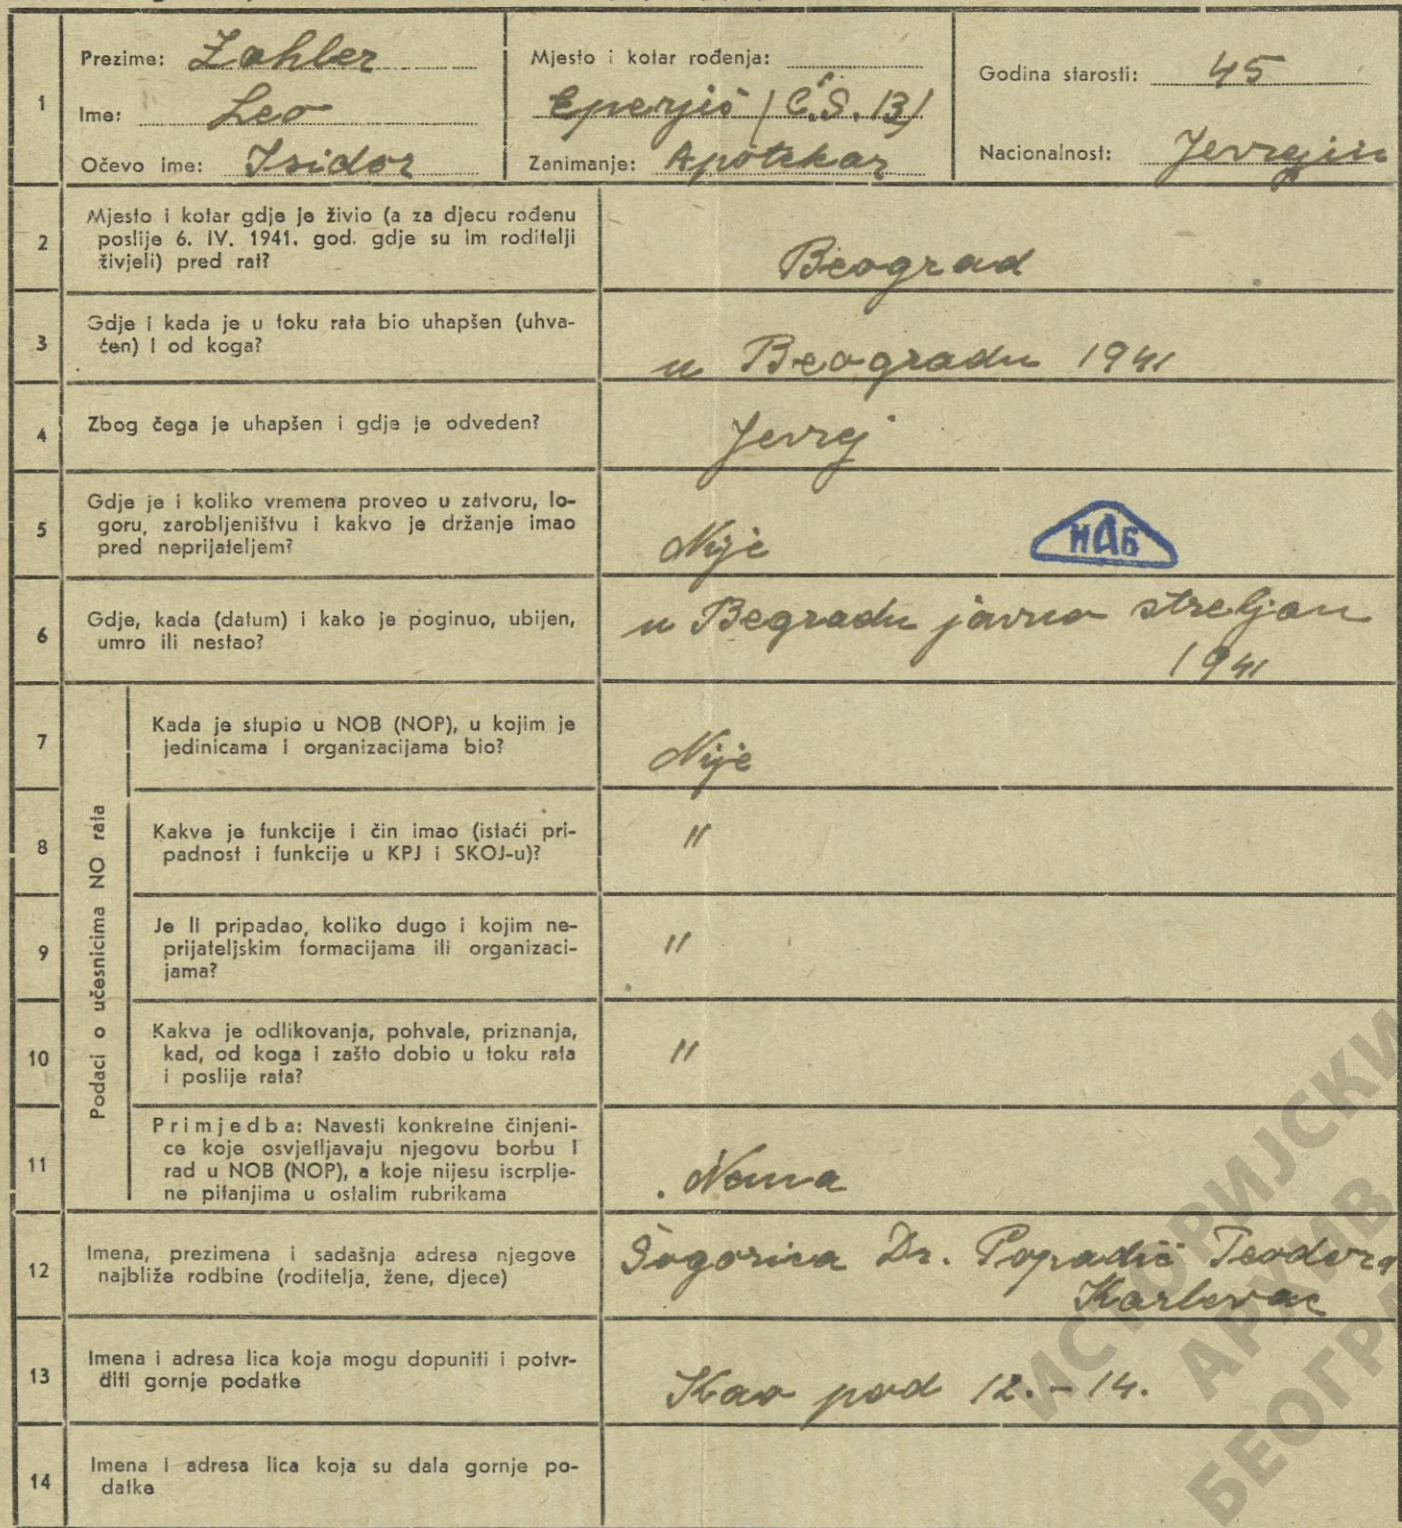 1
Prezime: Zahler
Ime: Leo
Očevo ime: Isidor
Mjesto i kotar rođenja:
Eperjiš (Č.S.R)
Zanimanje: Apotekar
Godina starosti: 45
Nacionalnost: Jevrejin
2
Mjesto i kotar gdje je živio (a za djecu rođenu
poslije 6. IV. 1941. god. gdje su im roditelji
živjeli) pred rat?
Beograd
3
Gdje i kada je u toku rata bio uhapšen (uhva-
ćen) i od koga?
u Beogradu 1941
4
Zbog čega je uhapšen i gdje je odveden?
Jevrej
5
Gdje je i koliko vremena proveo u zatvoru, lo-
goru, zarobljeništvu i kakvo je držanje imao
pred neprijateljem?
Nije
ИАБ
6
Gdje, kada (datum) i kako je poginuo, ubijen,
umro ili nestao?
u Begradu javno streljan
1941
Podaci o učesnicima NO rata
7
Kada je stupio u NOB (NOP), u kojim je
jedinicama i organizacijama bio?
Nije
8
Kakve je funkcije i čin imao (istaći pri-
padnost i funkcije u KPJ i SKOJ-u)?
"
9
Je li pripadao, koliko dugo i kojim ne-
prijateljskim formacijama ili organizaci-
jama?
"
10
Kakva je odlikovanja, pohvale, priznanja,
kad, od koga i zašto dobio u toku rata
i poslije rata?
"
11
Primjedba: Navesti konkretne činjeni-
ce koje osvjetljavaju njegovu borbu i
rad u NOB (NOP), a koje nijesu iscrplje-
ne pitanjima u ostalim rubrikama
Nema
12
Imena, prezimena i sadašnja adresa njegove
najbliže rodbine (roditelja, žene, djece)
Šogorica Dr. Popadić Teodora
Karlovac
13
Imena i adresa lica koja mogu dopuniti i potvr-
diti gornje podatke
Kao pod 12.-14.
14
Imena i adresa lica koja su dala gornje po-
datke
ИСТОРИЈСКИ
АРХИВ
БЕОГРА